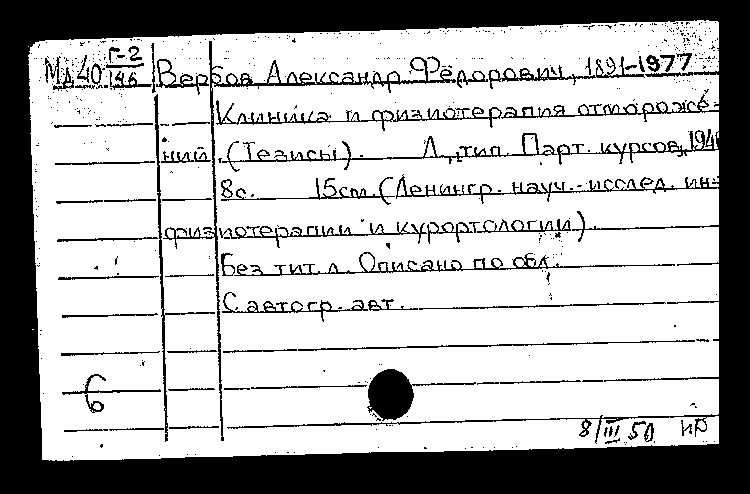 Мд40 Г-2/146 Вербов, Александр Фёдорович, 1891-1977
Клиника и физиотерапия отмороже-
ний. (Тезисы). Л., тип. Парт. курсов, 194
8с. 15см. (Ленингр. науч.-исслед. ин-
физиотерапии и курортологии).
Без тит. л. Описано по обл.
С автогр. авт.
6
8/III 50 НР